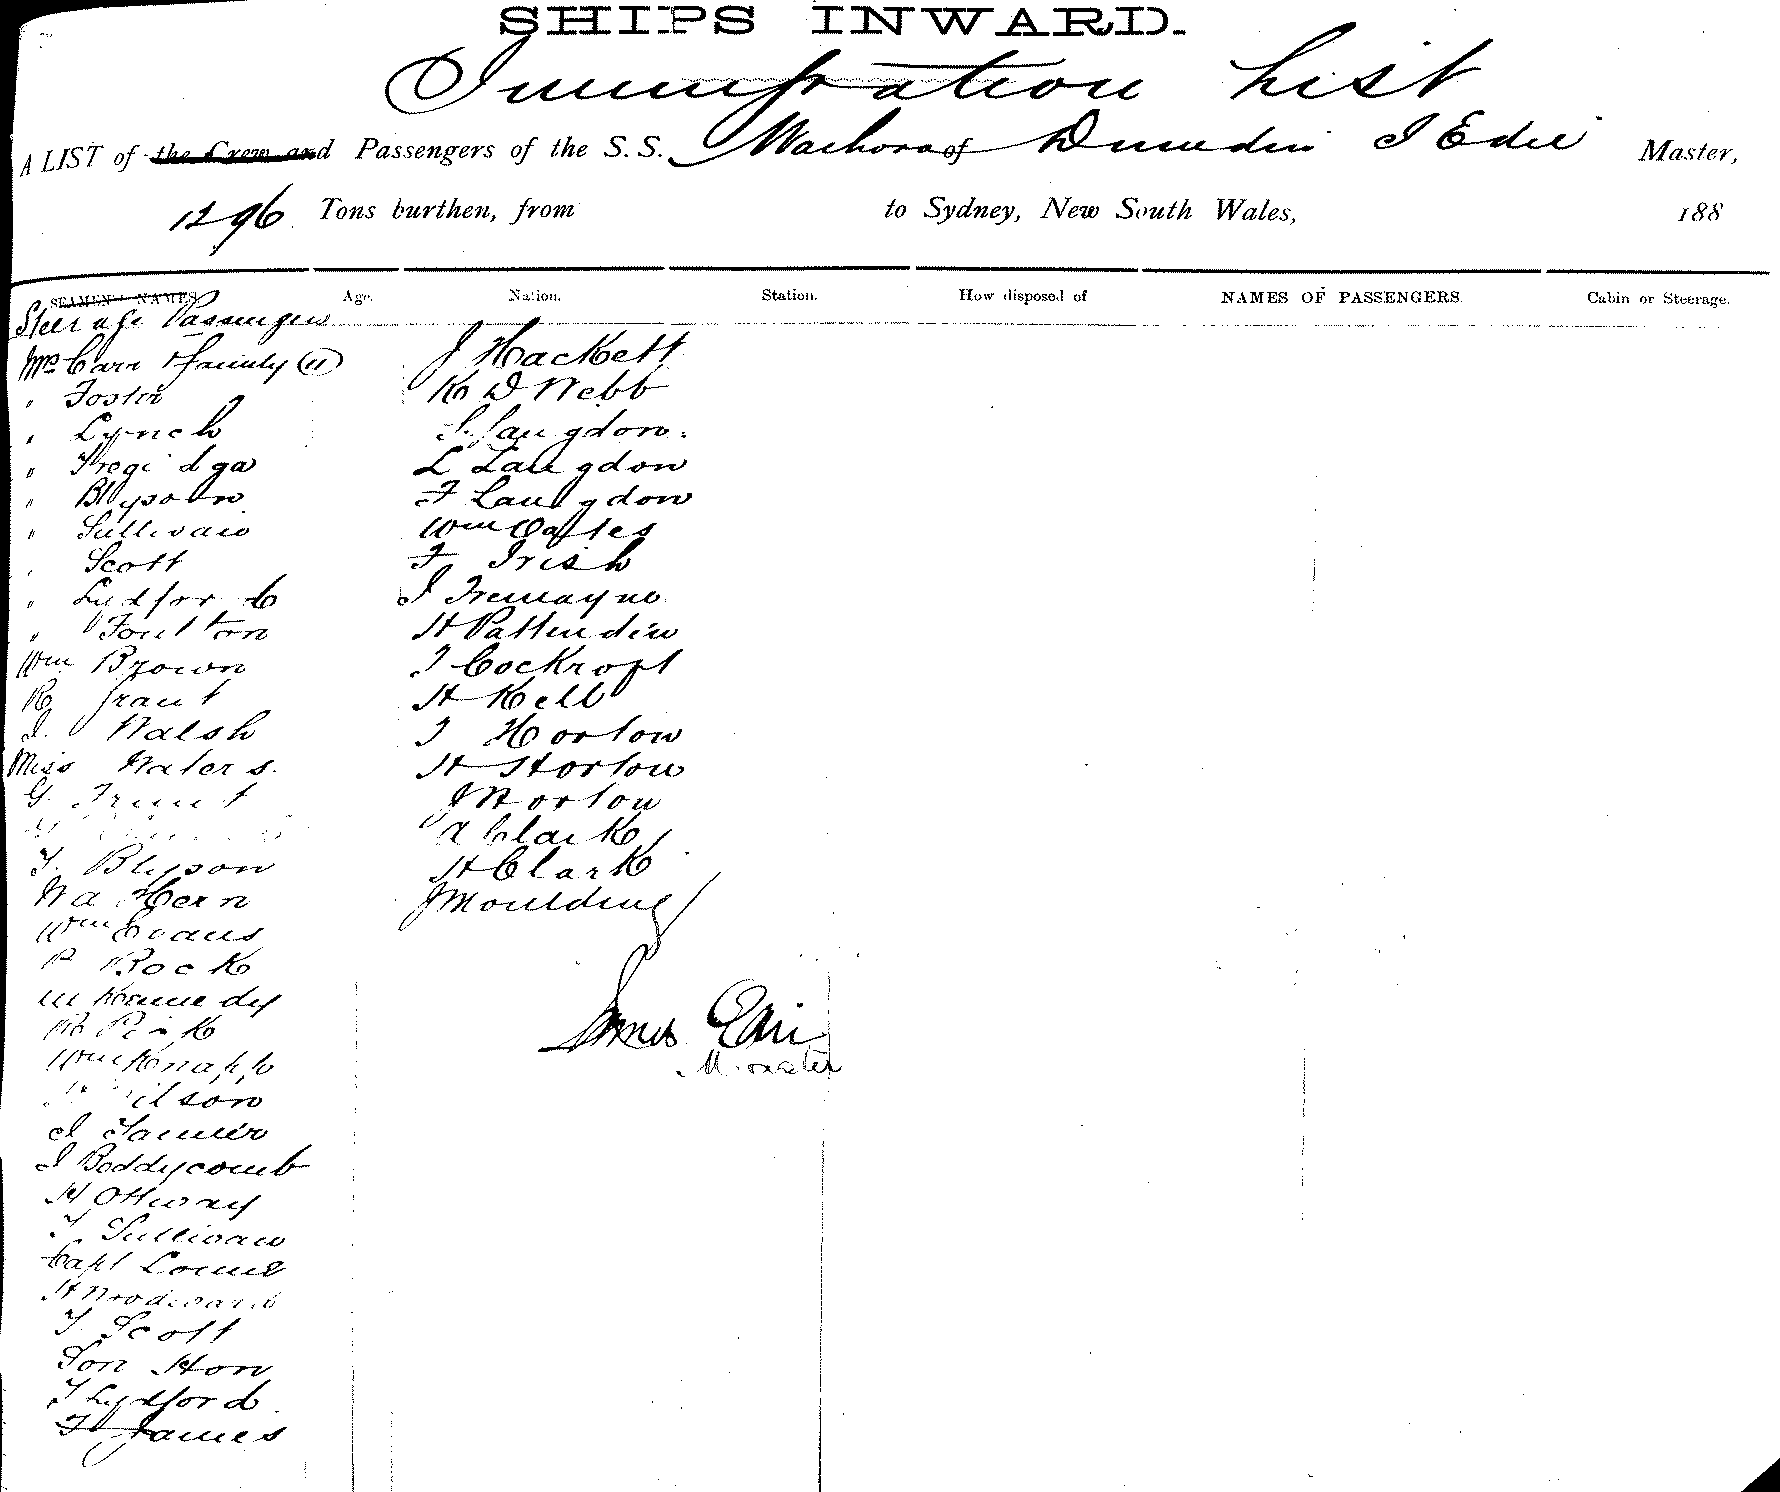 SHIPS INWARD.
Immigration List
A LIST of the Crew and Passengers of the S.S. Waihora of Dunedin J Edie Master,
1296 Tons burthen, from to Sydney, New South Wales, 188
SEAMEN'S NAMES Age. Nation. Station. How disposed of NAMES OF PASSENGERS Cabin or Steerage.
Steerage Passengers
Mrs Carr & family (11)
" Foster
" Lynch
" Tregidga
" Blyson
" Sullivan
" Scott
" Lydford
" Foulton
Wm Brown
R Grant
J. Walsh
Miss Waters.
G.
T. Blyson
Wa Hern
Wm Evans
P Rock
M Kennedy
R Pink
Wm Knapp
Wilson
J
J Boddycomb
H Ottway
T Sullivan
Capt
H Woodward
T Scott
Son Hon
T Lydford
F James
J Hackett
R D Webb
S. Langdon.
L Langdon
F Langdon
Wm Oates
F Irish
J Tremayne
H Pattenden
J Cockroft
H Kell
J Horton
H Horton
J Horton
A Clark
H Clark
J Moulding
James Edie
Master